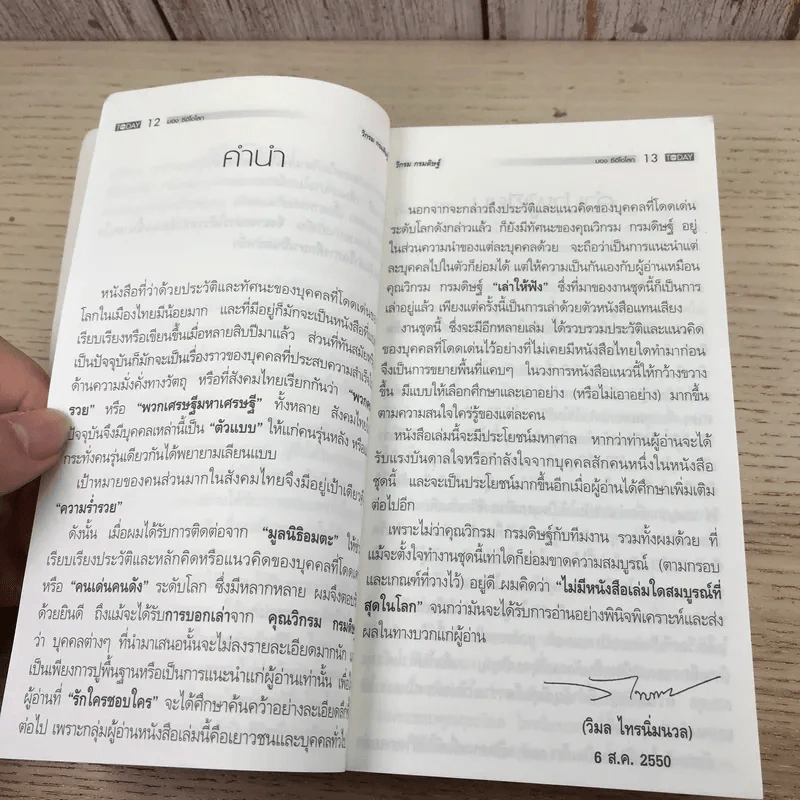 TODAY 12 มอง ซีอีโอโลก
วิกรม
คำนำ
หนังสือที่ว่าด้วยประวัติและทัศนะของบุคคลที่โดดเด่น
โลกในเมืองไทยมีน้อยมาก และที่มีอยู่ก็มักจะเป็นหนังสือที่
เรียบเรียงหรือเขียนขึ้นเมื่อหลายสิบปีมาแล้ว ส่วนที่ทันสมัย
เป็นปัจจุบันก็มักจะเป็นเรื่องราวของบุคคลที่ประสบความสำเร็จ
ด้านความมั่งคั่งทางวัตถุ หรือที่สังคมไทยเรียกกันว่า
รวย” หรือ “พวกเศรษฐีมหาเศรษฐี” ทั้งหลาย สังคมไทย
ปัจจุบันจึงมีบุคคลเหล่านี้เป็น “ตัวแบบ” ให้แก่คนรุ่นหลัง
กระทั่งคนรุ่นเดียวกันได้พยายามเลียนแบบ
เป้าหมายของคนส่วนมากในสังคมไทยจึงมีอยู่เป้าเดียว
“ความร่ำรวย”
ดังนั้น เมื่อผมได้รับการติดต่อจาก “มูลนิธิอมตะ” ให้
เรียบเรียงประวัติและหลักคิดหรือแนวคิดของบุคคลที่โดดเด่น
หรือ “คนเด่นคนดัง” ระดับโลก ซึ่งมีหลากหลาย ผมจึงตอบ
ด้วยยินดี ถึงแม้จะได้รับการบอกเล่าจาก คุณวิกรม กรมดิษฐ์
ว่า บุคคลต่างๆ ที่นำมาเสนอนั้นจะไม่ลงรายละเอียดมากนัก
เป็นเพียงการปูพื้นฐานหรือเป็นการแนะนำแก่ผู้อ่านเท่านั้น
ผู้อ่านที่ “รักใครชอบใคร” จะได้ศึกษาค้นคว้าอย่างละเอียด
ต่อไป เพราะกลุ่มผู้อ่านหนังสือเล่มนี้คือเยาวชนและบุคคลทั่วไป
วิกรม กรมดิษฐ์ มอง ซีอีโอโลก 13 TODAY
นอกจากจะกล่าวถึงประวัติและแนวคิดของบุคคลที่โดดเด่น
ระดับโลกดังกล่าวแล้ว ก็ยังมีทัศนะของคุณวิกรม กรมดิษฐ์ อยู่
ในส่วนความนำของแต่ละบุคคลด้วย จะถือว่าเป็นการแนะนำแต่
ละบุคคลไปในตัวก็ย่อมได้ แต่ให้ความเป็นกันเองกับผู้อ่านเหมือน
คุณวิกรม กรมดิษฐ์ “เล่าให้ฟัง” ซึ่งที่มาของงานชุดนี้ก็เป็นการ
เล่าอยู่แล้ว เพียงแต่ครั้งนี้เป็นการเล่าด้วยตัวหนังสือแทนเสียง
งานชุดนี้ ซึ่งจะมีอีกหลายเล่ม ได้รวบรวมประวัติและแนวคิด
ของบุคคลที่โดดเด่นไว้อย่างที่ไม่เคยมีหนังสือไทยใดทำมาก่อน
จึงเป็นการขยายพื้นที่แคบๆ ในวงการหนังสือแนวนี้ให้กว้างขวาง
ขึ้น มีแบบให้เลือกศึกษาและเอาอย่าง (หรือไม่เอาอย่าง) มากขึ้น
ตามความสนใจใคร่รู้ของแต่ละคน
หนังสือเล่มนี้จะมีประโยชน์มหาศาล หากว่าท่านผู้อ่านจะได้
รับแรงบันดาลใจหรือกำลังใจจากบุคคลสักคนหนึ่งในหนังสือ
ชุดนี้ และจะเป็นประโยชน์มากขึ้นอีกเมื่อผู้อ่านได้ศึกษาเพิ่มเติม
ต่อไปอีก
เพราะไม่ว่าคุณวิกรม กรมดิษฐ์กับทีมงาน รวมทั้งผมด้วย ที่
แม้จะตั้งใจทำงานชุดนี้เท่าใดก็ย่อมขาดความสมบูรณ์ (ตามกรอบ
และเกณฑ์ที่วางไว้) อยู่ดี ผมคิดว่า “ไม่มีหนังสือเล่มใดสมบูรณ์ที่
สุดในโลก” จนกว่ามันจะได้รับการอ่านอย่างพินิจพิเคราะห์และส่ง
ผลในทางบวกแก่ผู้อ่าน
(วิมล ไทรนิ่มนวล)
6 ส.ค. 2550